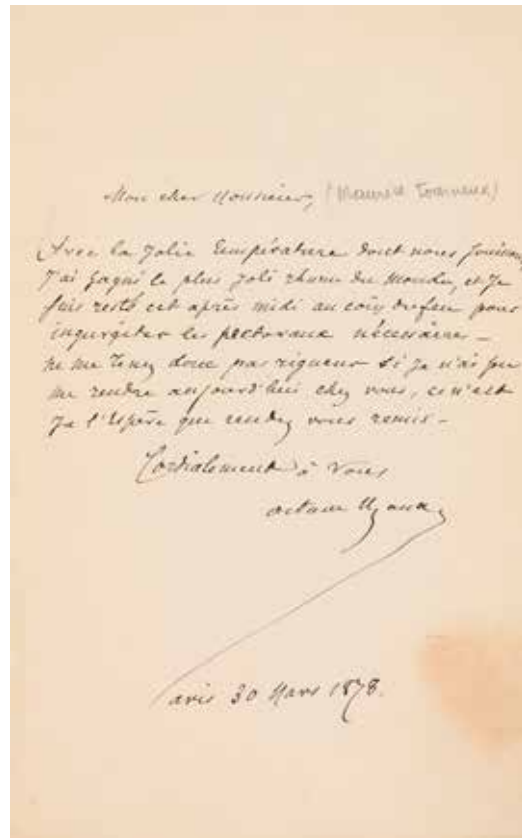 Mon cher Monsieur, (Maurice Tourneux)
Avec la Jolie température dont nous Jouissons,
J'ai gagné le plus Joli rhume du Monde, et Je
suis resté cet après midi au coin du feu pour
ingurgiter les pectoraux nécessaires –
ne me tenez donc pas rigueur si Je n'ai pu
me rendre aujourd'hui chez vous, ce n'est
Je l'Espère que rendez vous remis –
Cordialement à Vous
octave Uzanne
Paris 30 Mars 1878.